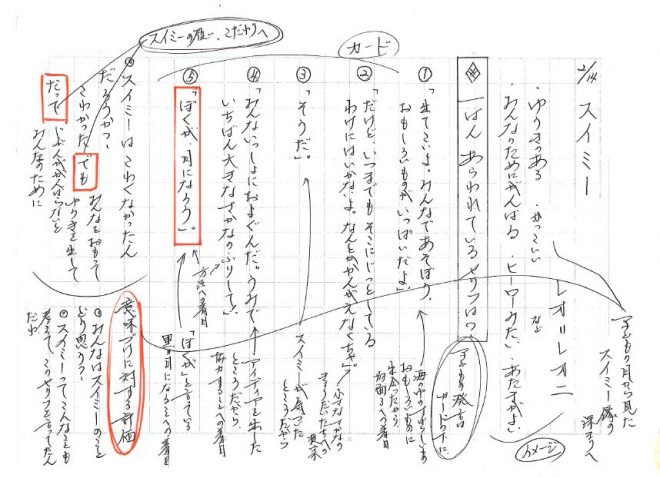 2/14
スイミー
レオ・レオニ
・ゆうきのある
・かっこいい
みんなのためにがんばる
・ヒーローみたい
・あたまがよい
など
イメージ
子どもの目から見た
スイミー像の
深まりへ
一ばん あらわれているセリフは？
子どもの発言
カード
①「出てこいよ。みんなであそぼう。
おもしろいものがいっぱいだよ。」
海の中のすばらしさ
おもしろいものに
出会ったから
②「だけど、いつまでもそこにじっとしている
わけにはいかないよ。なんとかかんがえなくちゃ。」
小さなさかな
③「そうだ」。
スイミーが気づいた
ところだから
④「みんないっしょにおよぐんだ。うみで
いちばん大きなさかなのふりして」。
アイディアを出した
ところだから
協力することへの着目
⑤「ぼくが、目になろう」。
方法へ着目
「ぼくが」と言っている
黒い目になることへの着目
スイミーの思い、こだわりへ
スイミーはこわくなかったん
だろうか？
こわかった でも
みんなをおもって
ゆうきを出して
だって
じぶんががんばらないと
みんなのために
意味づけに対する評価
みんなはスイミーのこと
どう思う？
スイミーってこんなことも
考えてこのセリフを言ってたん
だね